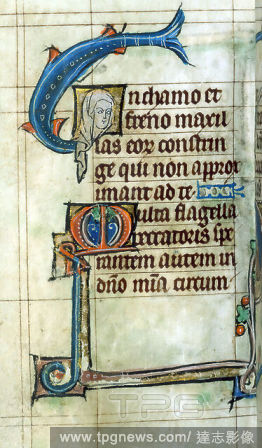 In chamo et
freno maxil
las eor constrin
ge qui non aprox
imant ad te
Multa flagella
peccatoris spe
rantem autem in
dno mia circum
TPG
www.tpgnews.com / 達志影像